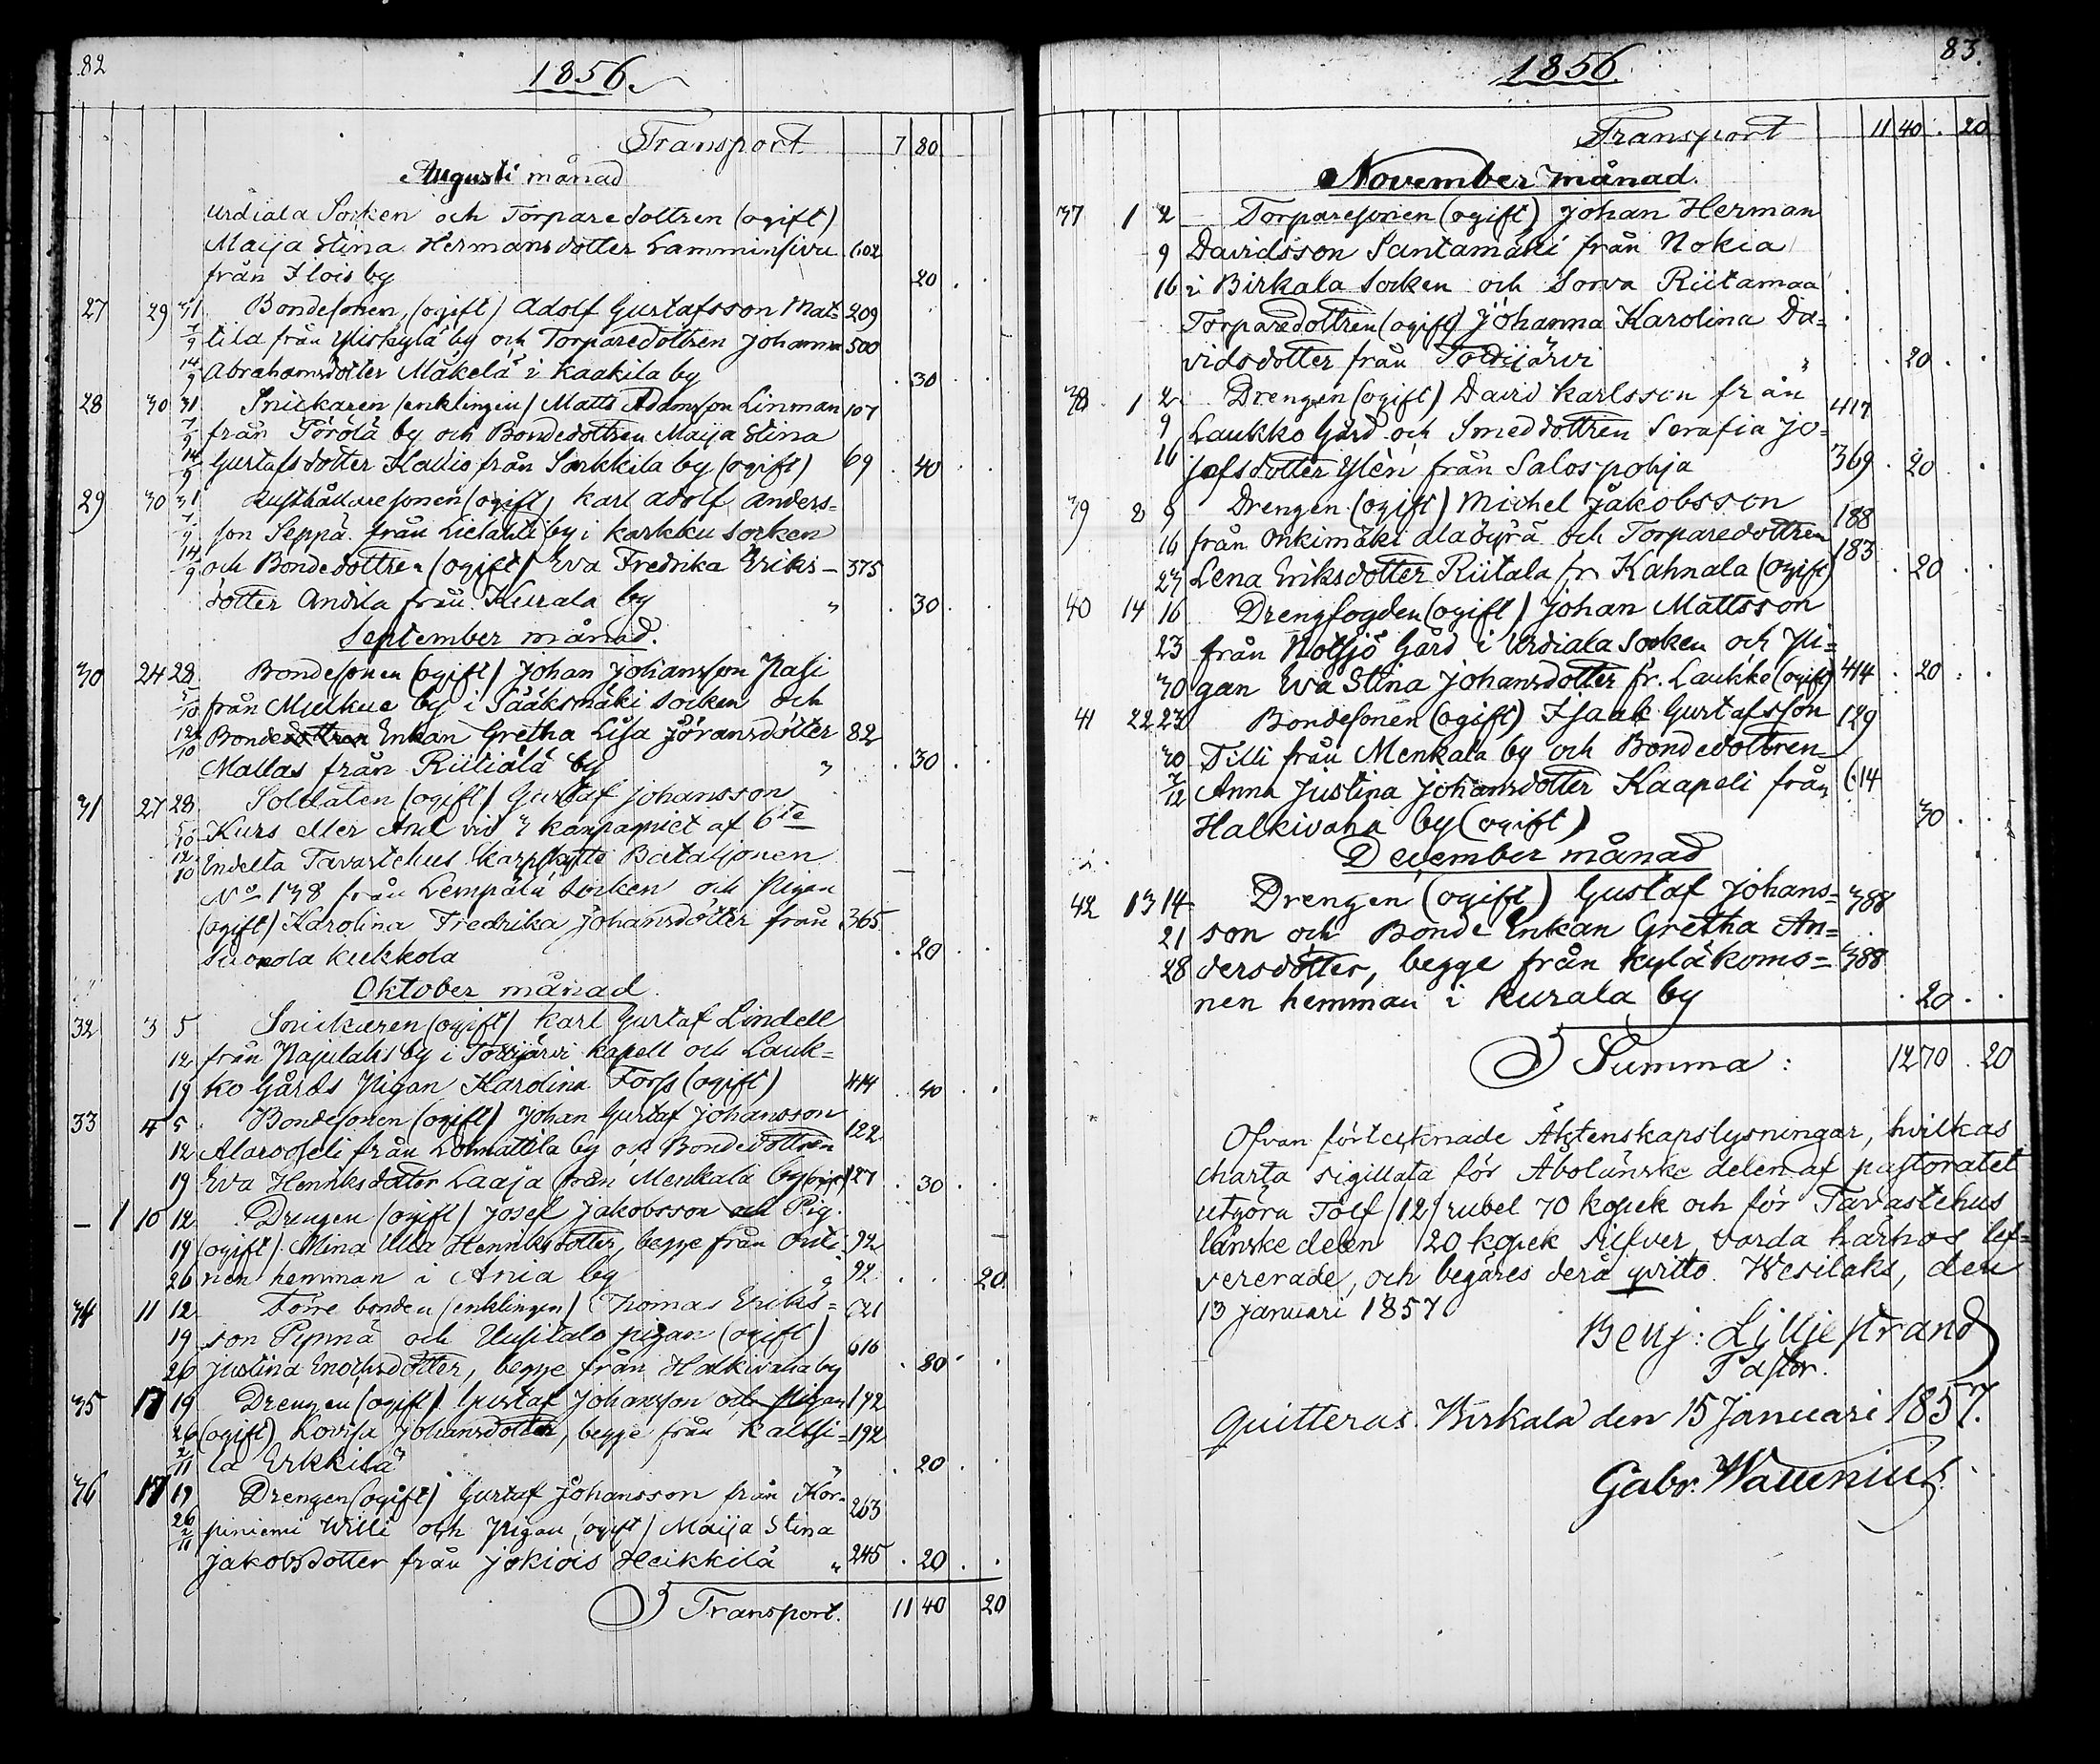 82
1856.
Transport 7 80
Augusti månad
Urdiala Socken och Torparedottren (ogift)
Maija Stina Hermansdotter Lamminsivu 602
från Ilois by 20
27 29 31 Bondesonen, (ogift) Adolf Gustafsson Mat= 209
7/9 tila från Yliskylä by och Torparedottren Johanna 500
14/9 Abrahamsdotter Mäkelä i Kaakila by 30
28 30 31 Snickaren (enklingen) Matts Adamsson Linman 107
7/9 från Pörölä by och Bondedottren Maija Stina
14/9 Gustafsdotter Kallio från Sarkkila by (ogift) 69 40
29 30 31 Rusthållaresonen (ogift) Karl Adolf Anders=
7/9 son Seppä från by i Karkku socken
14/9 och Bondedottren (ogift) Eva Fredrika Eriks= 375
dotter Andila från Kurala by " 30
September månad.
30 24 28 Bondesonen (ogift) Johan Johansson Pasi
5/10 från by i Sääksmäki socken och
12/10 Bondedottren Enkan Gretha Lisa Jöransdotter 82
Mallas från Riitiälä by " 30
31 27 28 Soldaten (ogift) Gustaf Johansson
5/10 Kurs eller vid 3 kompagniet af 6te
12/10 Indelta Tavastehus Skarpskytte Bataljonen
No 138 från Lempälä socken och Pigan
(ogift) Karolina Fredrika Johansdotter från 365
Suonola Kukkola 20
Oktober månad
32 3 5 Snickaren (ogift) Karl Gustaf Lindell
12 från Pajulahs by i Tottijärvi kapell och Lauk=
19 ko Gårds Pigan Karolina Forss (ogift) 414 40
33 4 5 Bondesonen (ogift) Johan Gustaf Johansson 122
12 Alarooseli från by och Bondedottren
19 Eva Henriksdotter Laaja från Menkala by (ogift) 127 30
— 1 10 12 Drengen (ogift) Josef Jakobsson och Pig.
19 (ogift) Mina Ulla Henriksdotter, begge från Outi 92
26 nen hemman i Ania by 92 20
34 11 12 Förre bonden (enklingen) Thomas Eriks= 621
19 son Pynnä och Uusitalo pigan (ogift) 616
26 Justina Enochsdotter, begge från Halkivaha by 80
35 17 19 Drengen (ogift) Gustaf Johansson och Pigan 192
26 (ogift) Lovisa Johansdotter, begge från Kaltsi= 192
2/11 la Erkkilä 20
36 17 19 Drengen (ogift) Gustaf Johansson från Kor= 263
26 2/11 piniemi Willi och Pigan (ogift) Maija Stina
Jakobsdotter från Jokiois Heikkilä " 245 20
Transport. 11 40 20
83.
1856.
Transport 11 40 . 20
November månad.
37 1 2 Torparesonen (ogift) Johan Herman
9 Davidsson Santamäki från Nokia
16 i Birkala Socken och Sorva Riitamaa
Torparedottren (ogift) Johanna Karolina Da=
vidsdotter från Tottijärvi " 20
38 1 2 Drengen (ogift) David Karlsson från 417
9 Laukko Gård och Smeddottren Serafia Jo=
16 sefsdotter Ylén från Salospohja 369 20
39 8 9 Drengen (ogift) Michel Jakobsson 188
16 från Onkimäki och Torparedottren 183
23 Lena Eriksdotter Riitala fr. Kahnala (ogift) 20
40 14 16 Drengfogden (ogift) Johan Mattsson
23 från Notsjö Gård i Urdiala Socken och Pi=
30 gan Eva Stina Johansdotter fr. Laukko (ogift) 414 20
41 22 23 Bondesonen (ogift) Isaak Gustafsson 129
30 Tilli från Menkala by och Bondedottren
7/12 Anna Justina Johansdotter Kaapeli från 614
Halkivaha by (ogift) 30
December månad
42 13 14 Drengen (ogift) Gustaf Johans= 388
21 son och Bonde Enkan Gretha An=
28 dersdotter, begge från Kyläkoms= 388
nen hemman i Kurala by 20
Summa: 12 70 . 20
Ofvan förtecknade Äktenskapslysningar, hvilkas
charta sigillata för Åbolänske delen af pastoratet
utgöra Tolf /12/ rubel 70 kopek och för Tavastehus
länske delen /20 kopek silfver, varda härhos lef=
vererade, och begäres derå qvitto. Wesilaks, den
13 Januari 1857.
Benj: Lilljestrand
Pastor.
Quitteras. Birkala den 15 Januari 1857.
Gabr. Wallenius.